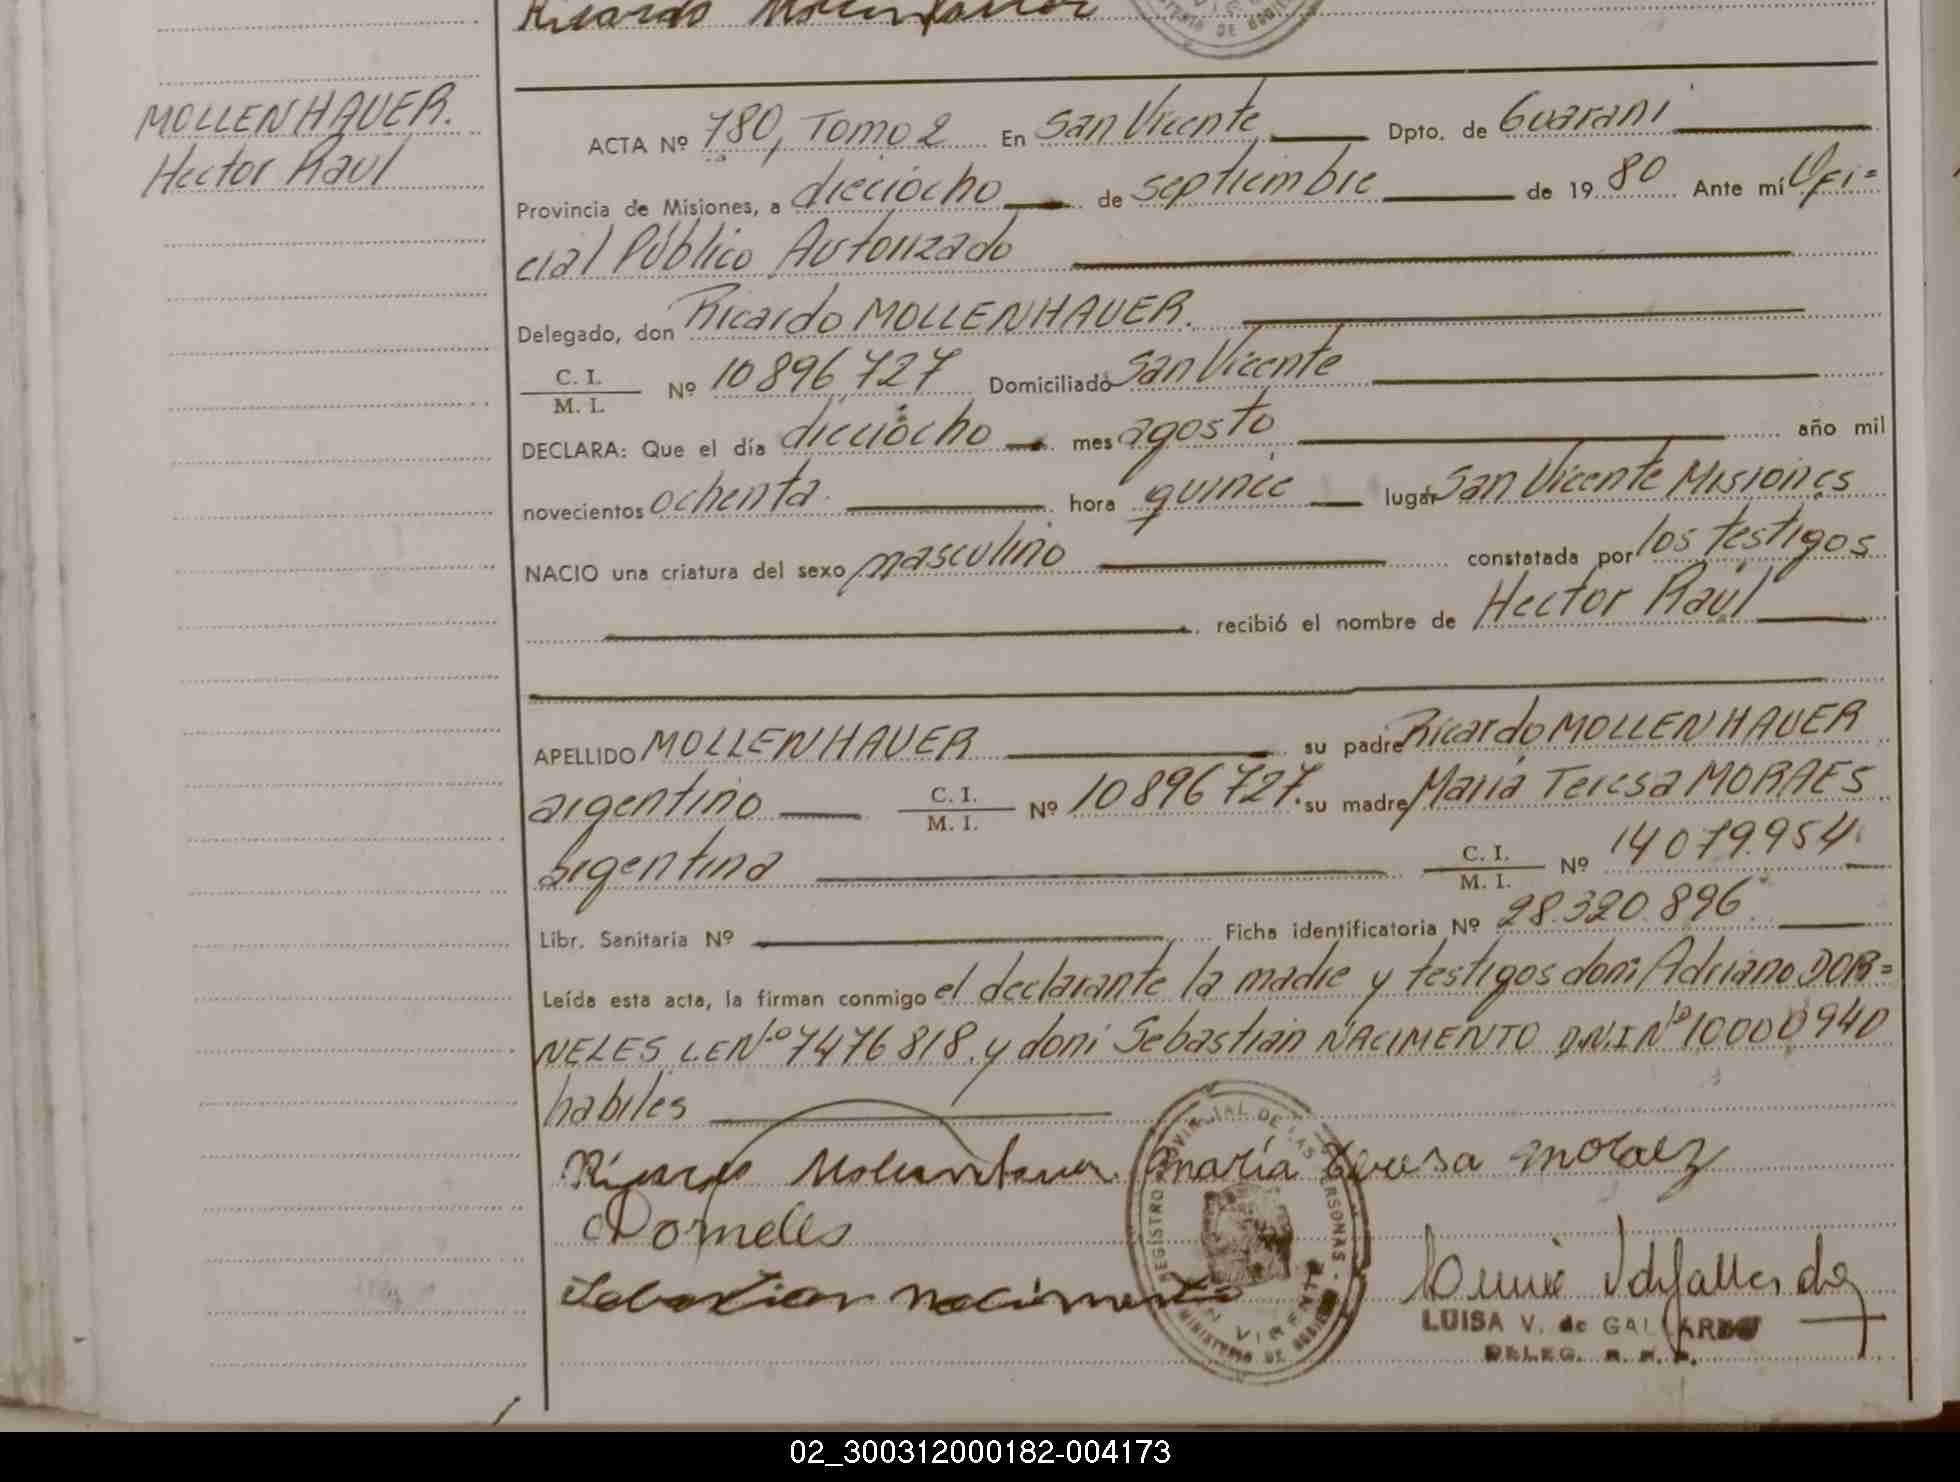 Ricardo
MOLLENHAUER.
Hector Raúl
ACTA Nº 780, Tomo 2 En San Vicente Dpto. de Guarani
Provincia de Misiones, a dieciocho de septiembre de 19 80 Ante mí Ofi=
cial Público Autorizado
Delegado, don Ricardo MOLLENHAUER.
C. I. / M. I. Nº 10896727 Domiciliado San Vicente
DECLARA: Que el día dieciocho mes agosto año mil
novecientos ochenta. hora quince lugar San Vicente Misiones
NACIO una criatura del sexo masculino constatada por los testigos
recibió el nombre de Hector Raúl
APELLIDO MOLLENHAUER su padre Ricardo MOLLENHAUER
argentino C. I. / M. I. Nº 10896727. su madre Maria Teresa MORAES
argentina C. I. / M. I. Nº 14079.954.
Libr. Sanitaria Nº Ficha identificatoria Nº 28.320.896
Leída esta acta, la firman conmigo el declarante la madre y testigos don: Adriano DOR=
NELES, L.E.Nº 7476818. y don: Sebastian NACIMENTO D.N.I Nº 10000940
habiles
Ricardo María Teresa Moraez
Dorneles
Sebastian Nacimento
REGISTRO PROVINCIAL DE LAS PERSONAS
SAN VICENTE
MINISTERIO DE GOBIERNO
LUISA V. de GALLARDO
DELEG. R. P. P.
02_300312000182-004173